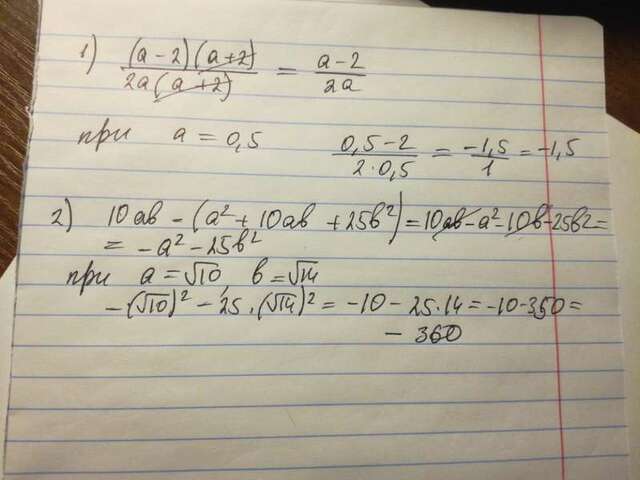 1) (a-2)(a+2) / 2a(a+2) = a-2 / 2a
при a = 0,5 0,5-2 / 2·0,5 = -1,5 / 1 = -1,5
2) 10ab - (a² + 10ab + 25b²) = 10ab - a² - 10b - 25b² =
= -a² - 25b²
при a = √10, b = √14
-(√10)² - 25·(√14)² = -10 - 25·14 = -10-350 =
- 360